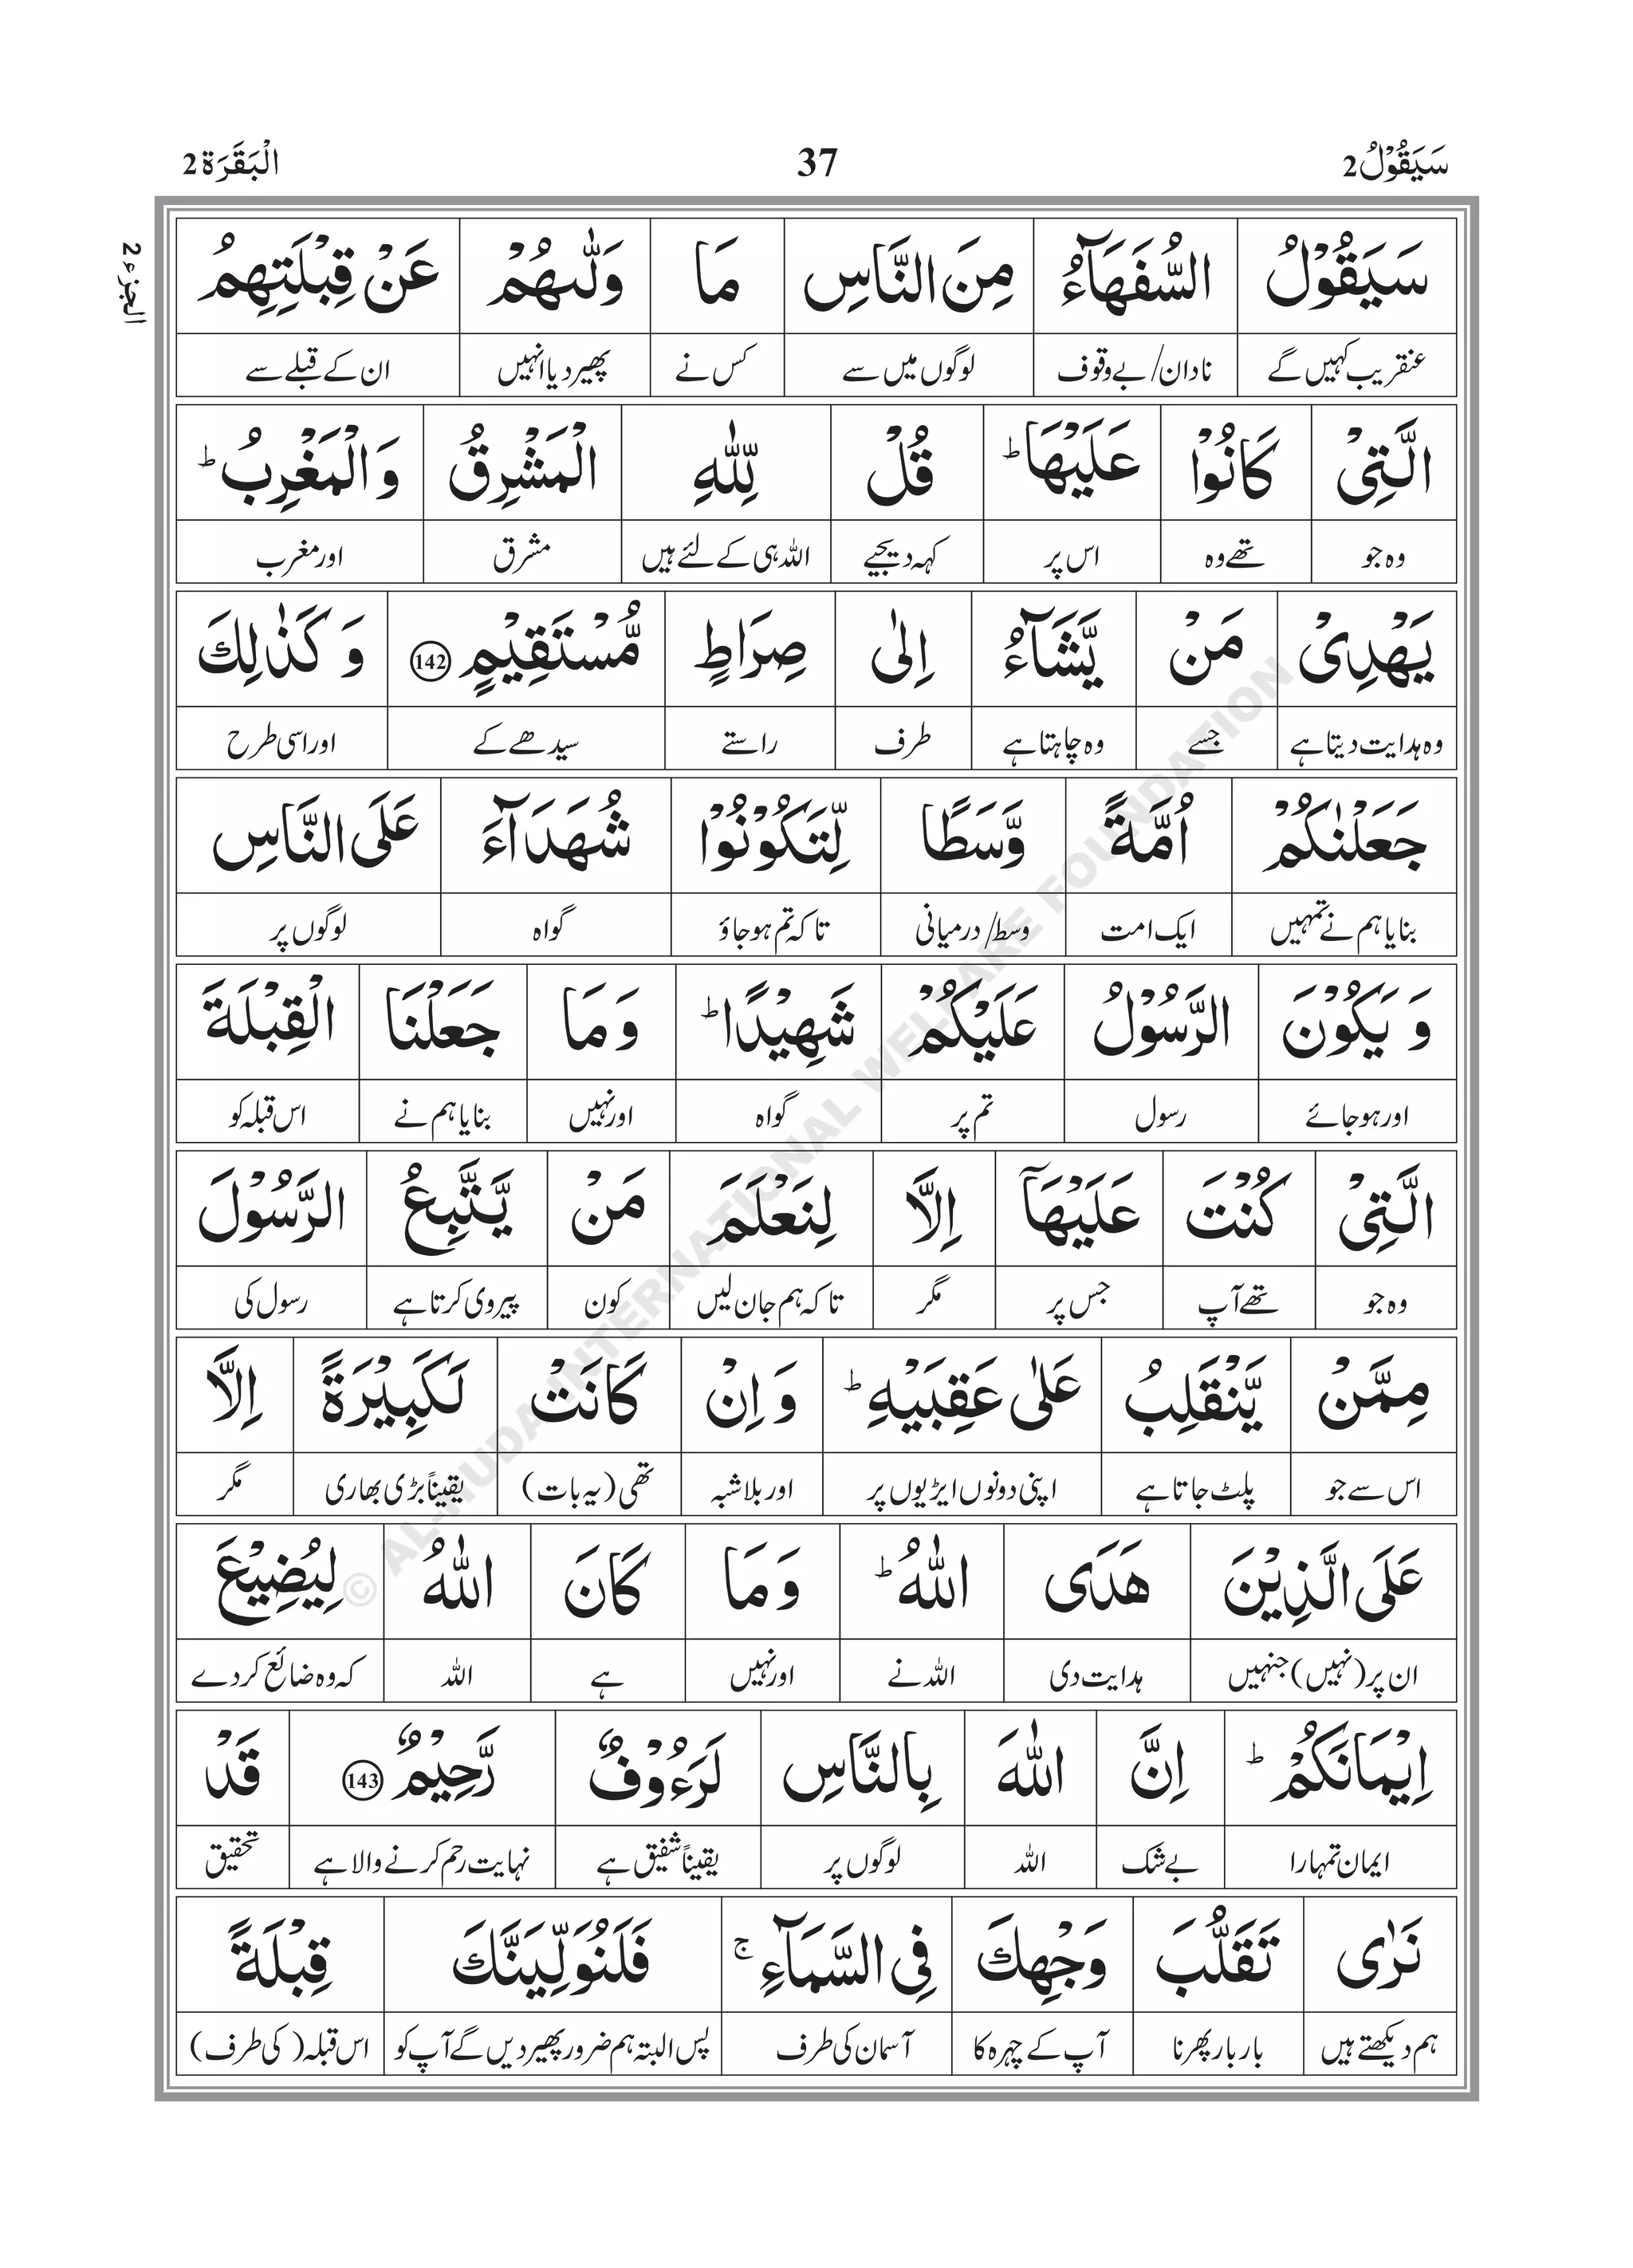 سَيَقُوْلُ2 37 الْبَقَرَة2
الجزء 2
سَيَقُوْلُ السُّفَهَآءُ مِنَ النَّاسِ مَا وَلّٰىهُمْ عَنْ قِبْلَتِهِمُ
عنقریب کہیں گے نادان/بے وقوف لوگوں میں سے کس نے پھیر دیا انہیں ان کے قبلے سے
الَّتِىْ كَانُوْا عَلَيْهَا ؕ قُلْ لِّلّٰهِ الْمَشْرِقُ وَالْمَغْرِبُ ؕ
وہ جو تھے وہ اس پر کہہ دیجیے اللہ ہی کے لئے ہیں مشرق اور مغرب
يَهْدِىْ مَنْ يَّشَآءُ اِلٰى صِرَاطٍ مُّسْتَقِيْمٍ 142 وَ كَذٰلِكَ
وہ ہدایت دیتا ہے جسے وہ چاہتا ہے طرف راستے سیدھے کے اور اسی طرح
جَعَلْنٰكُمْ اُمَّةً وَّسَطًا لِّتَكُوْنُوْا شُهَدَآءَ عَلَى النَّاسِ
بنایا ہم نے تمہیں ایک امت وسط/درمیانی تاکہ تم ہو جاؤ گواہ لوگوں پر
وَ يَكُوْنَ الرَّسُوْلُ عَلَيْكُمْ شَهِيْدًا ؕ وَ مَا جَعَلْنَا الْقِبْلَةَ
اور ہو جائے رسول تم پر گواہ اور نہیں بنایا ہم نے اس قبلہ کو
الَّتِىْ كُنْتَ عَلَيْهَآ اِلَّا لِنَعْلَمَ مَنْ يَّتَّبِعُ الرَّسُوْلَ
وہ جو تھے آپ جس پر مگر تاکہ ہم جان لیں کون پیروی کرتا ہے رسول کی
مِمَّنْ يَّنْقَلِبُ عَلٰى عَقِبَيْهِ ؕ وَ اِنْ كَانَتْ لَكَبِيْرَةً اِلَّا
اس سے جو پلٹ جاتا ہے اپنی دونوں ایڑیوں پر اور بلاشبہ تھی (یہ بات) یقیناً بڑی بھاری مگر
عَلَى الَّذِيْنَ هَدَى اللّٰهُ ؕ وَ مَا كَانَ اللّٰهُ لِيُضِيْعَ
ان پر (نہیں) جنہیں ہدایت دی اللہ نے اور نہیں ہے اللہ کہ وہ ضائع کر دے
اِيْمَانَكُمْ ؕ اِنَّ اللّٰهَ بِالنَّاسِ لَرَءُوْفٌ رَّحِيْمٌ 143 قَدْ
ایمان تمہارا بے شک اللہ لوگوں پر یقیناً شفیق ہے نہایت رحم کرنے والا ہے تحقیق
نَرٰى تَقَلُّبَ وَجْهِكَ فِى السَّمَآءِ ۚ فَلَنُوَلِّيَنَّكَ قِبْلَةً
ہم دیکھتے ہیں بار بار پھرنا آپ کے چہرہ کا آسمان کی طرف پس البتہ ہم ضرور پھیر دیں گے آپ کو اس قبلہ (کی طرف)
© AL-HUDA INTERNATIONAL WELFARE FOUNDATION